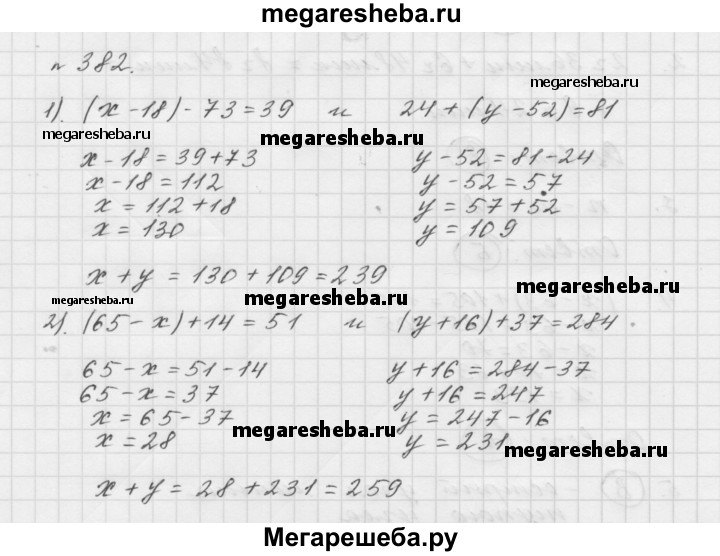 megaresheba.ru
№ 382.
megaresheba.ru
1). (x - 18) - 73 = 39 и 24 + (y - 52) = 81
megaresheba.ru megaresheba.ru
x - 18 = 39 + 73 y - 52 = 81 - 24
x - 18 = 112 y - 52 = 57
x = 112 + 18 y = 57 + 52
x = 130 y = 109
x + y = 130 + 109 = 239
megaresheba.ru megaresheba.ru megaresheba.ru
2). (65 - x) + 14 = 51 и (y + 16) + 37 = 284
65 - x = 51 - 14 y + 16 = 284 - 37
65 - x = 37 y + 16 = 247
x = 65 - 37 y = 247 - 16
megaresheba.ru
x = 28 y = 231
megaresheba.ru
x + y = 28 + 231 = 259
Мегарешеба.ру